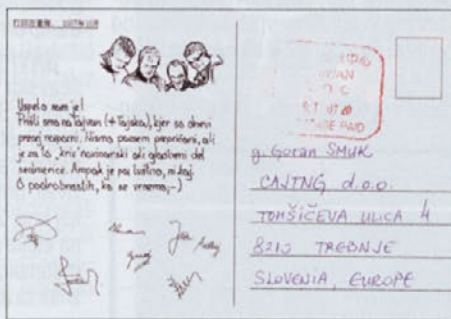 Uspelo nam je!
Prišli smo na Tajvan (+ Tajska), kjer so dnevi
precej naporni. Nismo povsem prepričani, ali
je za to "kriv" novinarski ali glasbeni del
sedmerice. Ampak je pa luštno, ni kaj.
O podrobnostih, ko se vrnemo ;-)
TAIWAN
R.O.C.
POSTAGE PAID
g. Goran SMUK
CAJTNG d.o.o.
TOMŠIČEVA ULICA 4
8210 TREBNJE
SLOVENIA, EUROPE